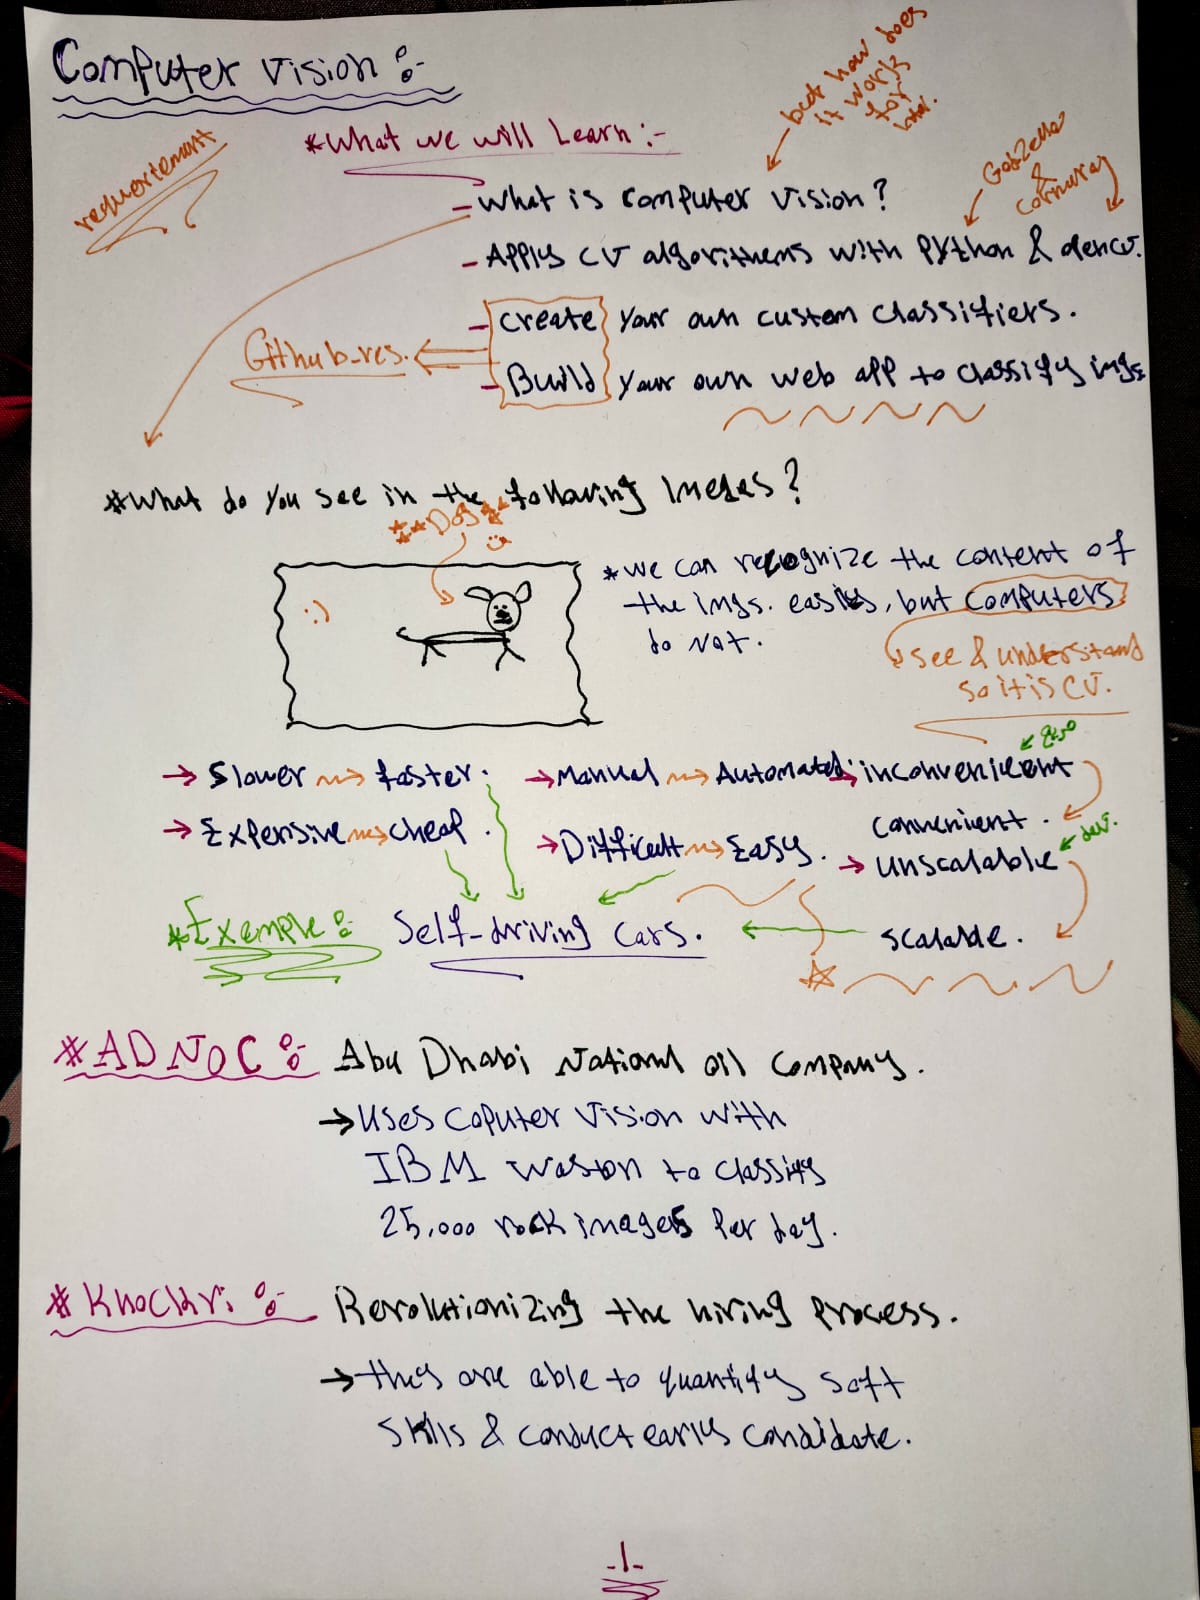 Computer vision :-
but how does
it work
for
later.
requertement
*What we will Learn :-
Godzella
&
- What is computer vision?
- Apply CV algorithems with Python &
- Create your own custom classifiers.
Github_res.
- Build your own web app to classify imgs
#What do you see in the following Imeges?
**Dog**
:)
*we can recognize the content of
the imgs. easily, but Computers
do not.
see & understand
so it is CV.
→ Slower → faster.
→ Manual → Automated.
→ inconvenicent
convenient.
→ Expensive → cheap.
→ Difficult → Easy.
→ unscalable
scalable.
*Exemple :- Self-driving cars.
#ADNOC :- Abu Dhabi National oil Company.
→ Uses Coputer Vision with
IBM Waston to classify
25,000 rock images Per day.
#Knockri :- Revolutionizing the hiring process.
→ they are able to quantify soft
skills & conduct early candidate.
-1-